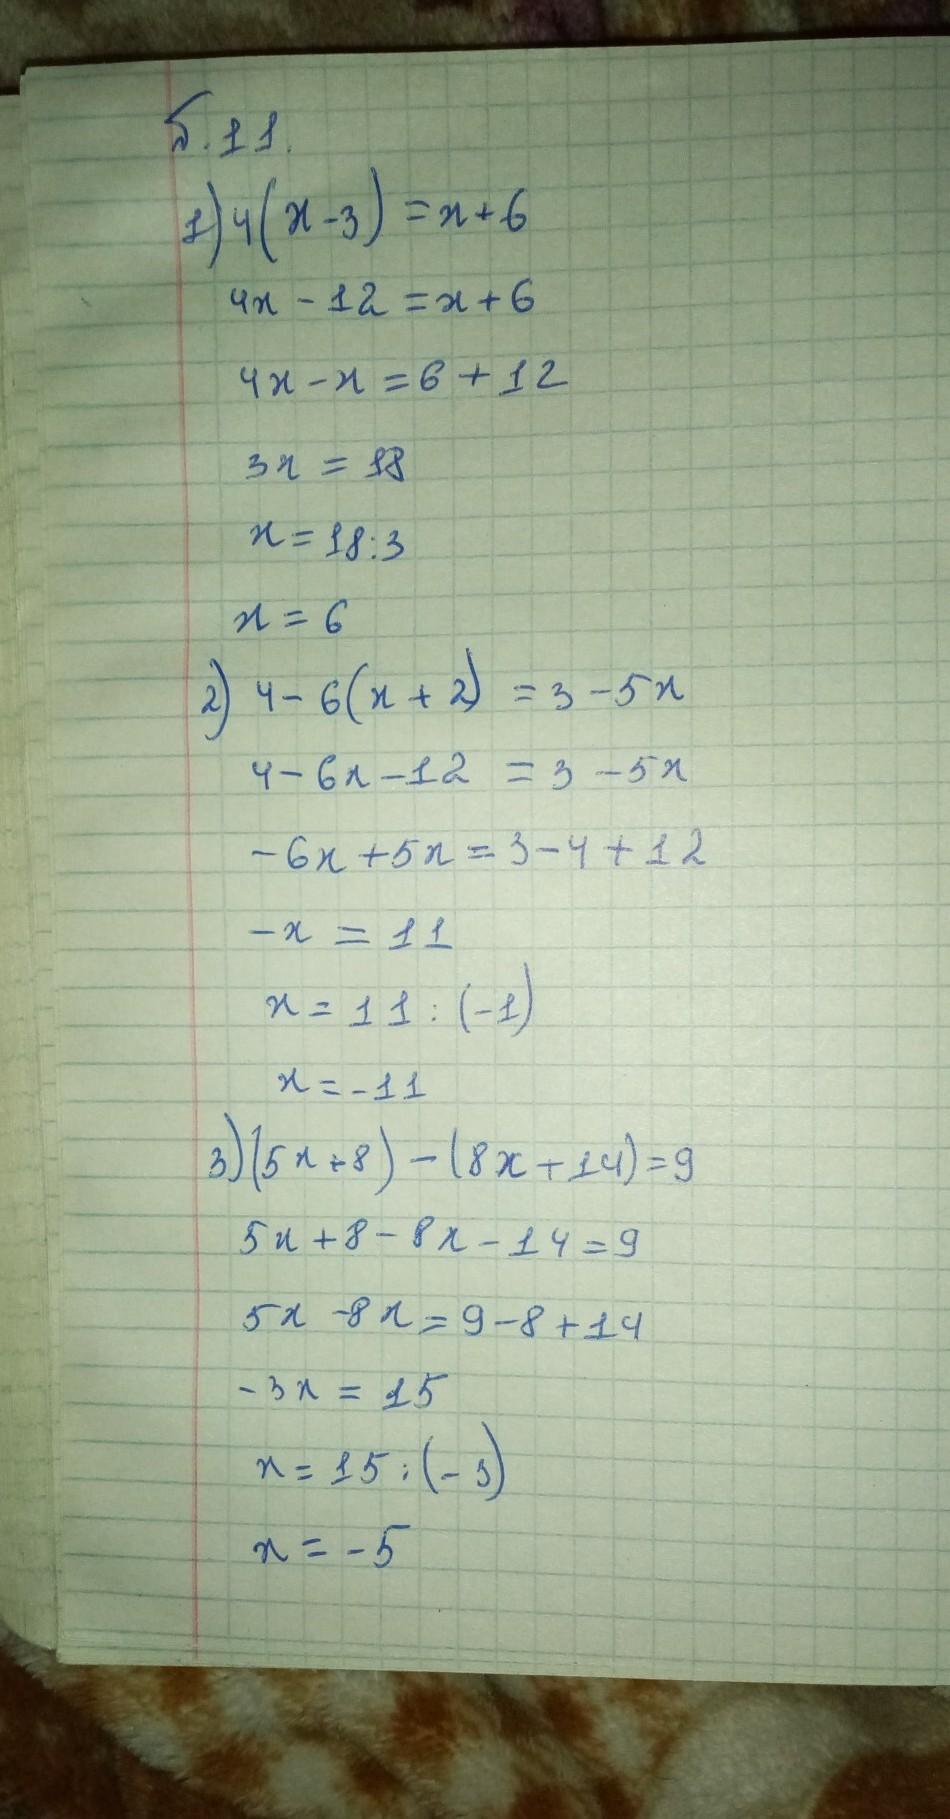 5.11.
1) 4(x-3) = x+6
4x - 12 = x+6
4x - x = 6 + 12
3x = 18
x = 18:3
x = 6
2) 4 - 6(x + 2) = 3 - 5x
4 - 6x - 12 = 3 - 5x
-6x + 5x = 3 - 4 + 12
-x = 11
x = 11 : (-1)
x = -11
3) (5x+8) - (8x + 14) = 9
5x + 8 - 8x - 14 = 9
5x -8x = 9 - 8 + 14
-3x = 15
x = 15 : (-3)
x = -5